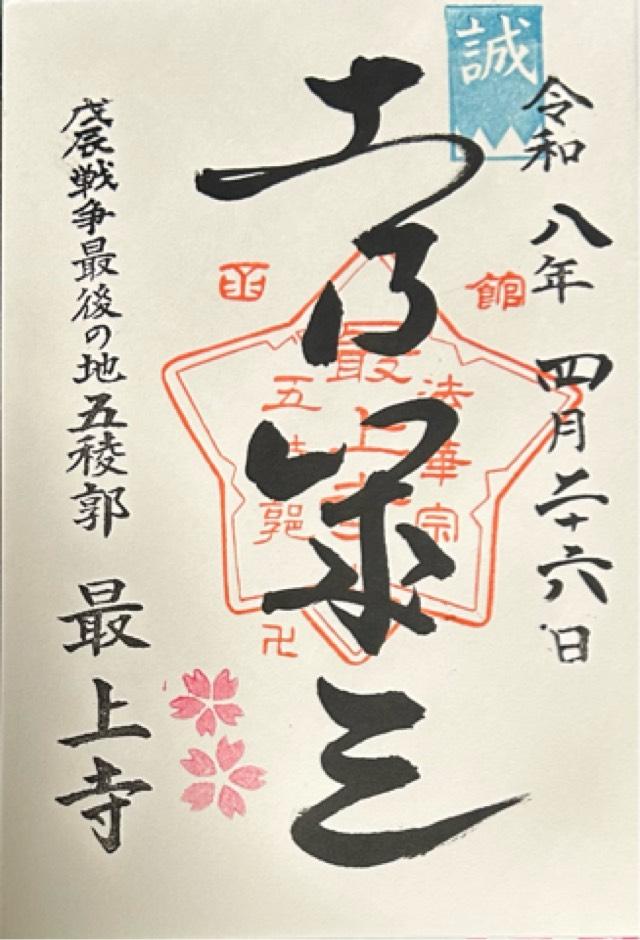 誠
令和八年 四月二十六日
土方歳三
函館
法華宗
最上寺
五稜郭
卍
戊辰戦争最後の地五稜郭 最上寺